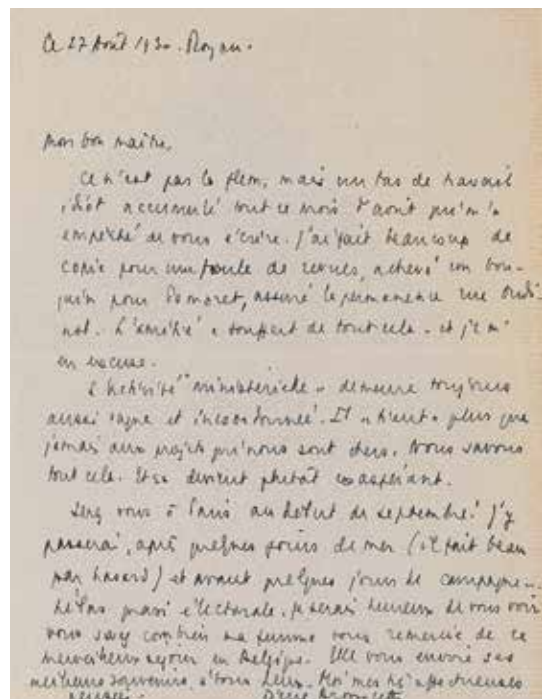 Ce 27 Août 1930. Royan.
Mon bon maître,
Ce n'est pas la flem, mais un tas de travail
idiot accumulé tout ce mois d'août qui m'a
empêché de vous écrire. J'ai fait beaucoup de
copie pour une foule de revues, achevé un bou-
quin pour Pomaret, assuré la permanence rue Oudi-
not. L'amitié a souffert de tout cela - et je m'
en excuse.
L'activité "ministérielle" demeure toujours
aussi vague et incoordonnée. Il "tient" plus que
jamais aux projets qui nous sont chers. Nous savons
tout cela. Et ça devient plutôt exaspérant.
Serez vous à Paris au début de septembre? J'y
passerai, après quelques jours de mer (il fait beau
par hasard) et avant quelques jours de campagne...
hélas quasi électorale. Je serais heureux de vous voir
vous savez combien ma femme vous remercie de ce
merveilleux séjour en Belgique. Elle vous envoie ses
meilleurs souvenirs, à tous deux. Moi mes affectueuses
pensées.